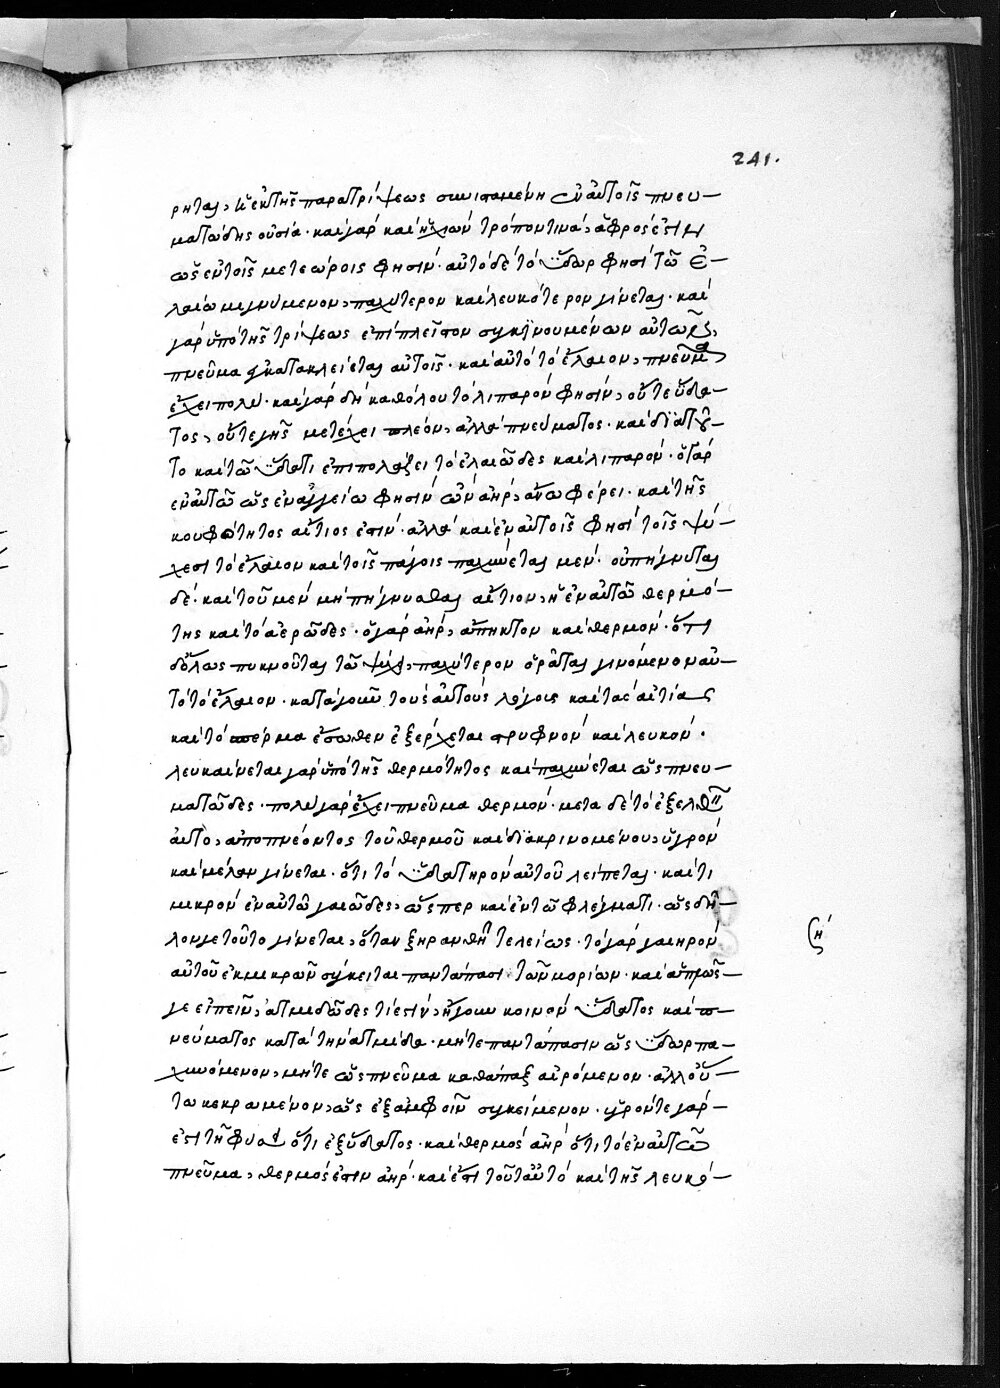 241.
ρηται, ἢ ἐκ τῆς παρατρίψεως συνισταμένη ἐν αὐτοῖς πνευ-
ματώδης οὐσία· καὶ γὰρ καὶ ἡ χιὼν τρόπον τινὰ, ἀφρός ἐστιν
ὡς ἐν τοῖς μετεώροις φησίν· αὐτὸ δὲ τὸ ὕδωρ φησὶ τῶ ἐ-
λαίω μιγνύμενον, παχύτερον καὶ λευκότερον γίνεται· καὶ
γὰρ ὑπὸ τῆς τρίψεως ἐπιπλεῖστον συγκινουμένων αὐτῶν,
πνεῦμα ἐγκατακλείεται αὐτοῖς· καὶ αὐτὸ τὸ ἔλαιον, πνεῦμα
ἔχει πολύ· καὶ γὰρ δὴ καθόλου τὸ λιπαρόν φησιν, οὔτε ὕδα-
τος, οὔτε γῆς μετέχει πλέον, ἀλλὰ πνεύματος· καὶ διατοῦ-
το καὶ τῶ ὕδατι ἐπιπολάζει τὸ ἐλαιῶδες καὶ λιπαρόν· ὁ γὰρ
ἐν αὐτῶ ὡς ἐν ἀγγείω φησὶν ὢν ἀὴρ, ἄνω φέρει· καὶ τῆς
κουφότητος αἴτιος ἐστίν· ἀλλὰ καὶ ἐν αὐτοῖς φησὶ τοῖς ψύ-
χεσι τὸ ἔλαιον καὶ τοῖς πάγοις παχύνεται μὲν· οὐ πήγνυται
δέ· καὶ τοῦ μὲν μὴ πήγνυσθαι αἴτιον, ἡ ἐν αὐτῶ θερμό-
της καὶ τὸ ἀερῶδες· ὁ γὰρ ἀὴρ, ἄπηκτον καὶ θερμόν· ὅτι
δ' ὅλως πυκνοῦται τῶ ψύχει, παχύτερον ὁρᾶται γινόμενον αὐ-
τὸ τὸ ἔλαιον· κατὰ γοῦν τοὺς αὐτοὺς λόγους καὶ τὰς αἰτίας
καὶ τὸ σπέρμα ἔσωθεν ἐξέρχεται στρυφνὸν καὶ λευκόν·
λευκαίνεται γὰρ ὑπὸ τῆς θερμότητος καὶ παχύνεται ὡς πνευ-
ματῶδες· πολὺ γὰρ ἔχει πνεῦμα θερμόν· μετὰ δὲ τὸ ἐξελθεῖν
αὐτὸ, ἀποπνέοντος τοῦ θερμοῦ καὶ διακρινομένου, ὑγρὸν
καὶ μέλαν γίνεται· ὅτι τὸ ὑδατηρὸν αὐτοῦ λείπεται· καὶ τι
μικρὸν ἐν αὐτῶ γαιῶδες, ὥσπερ καὶ ἐν τῶ φλέγματι· ὡς δῆ-
λόν γε τοῦτο γίνεται, ὅταν ξηρανθῆ τελείως· τὸ γὰρ γαιηρὸν
αὐτοῦ ἐκ μικρῶν σύγκειται παντάπασι τῶν μορίων· καὶ ἁπλῶς-
γε εἰπεῖν, ἀτμιδῶδες τί ἐστίν, ἤγουν κοινὸν ὕδατος καὶ π-
νεύματος κατὰ τὴν ἀτμίδα· μήτε παντάπασιν ὡς ὕδωρ πα-
χυνόμενον, μήτε ὡς πνεῦμα καθάπαξ αἰρόμενον· ἀλλ' οὕ-
τω κεκραμένον, ὡς ἐξ ἀμφοῖν συγκείμενον· ὑγρόν τε γάρ-
ἐστι τῆ φύσει ὅτι ἐξ ὕδατος· καὶ θερμὸς ἀὴρ ὅτι τὸ ἐν αὐτῶ
πνεῦμα, θερμός ἐστιν ἀὴρ· καὶ ἔστι τοῦτ' αὐτὸ καὶ τῆς λευκό-
ζή